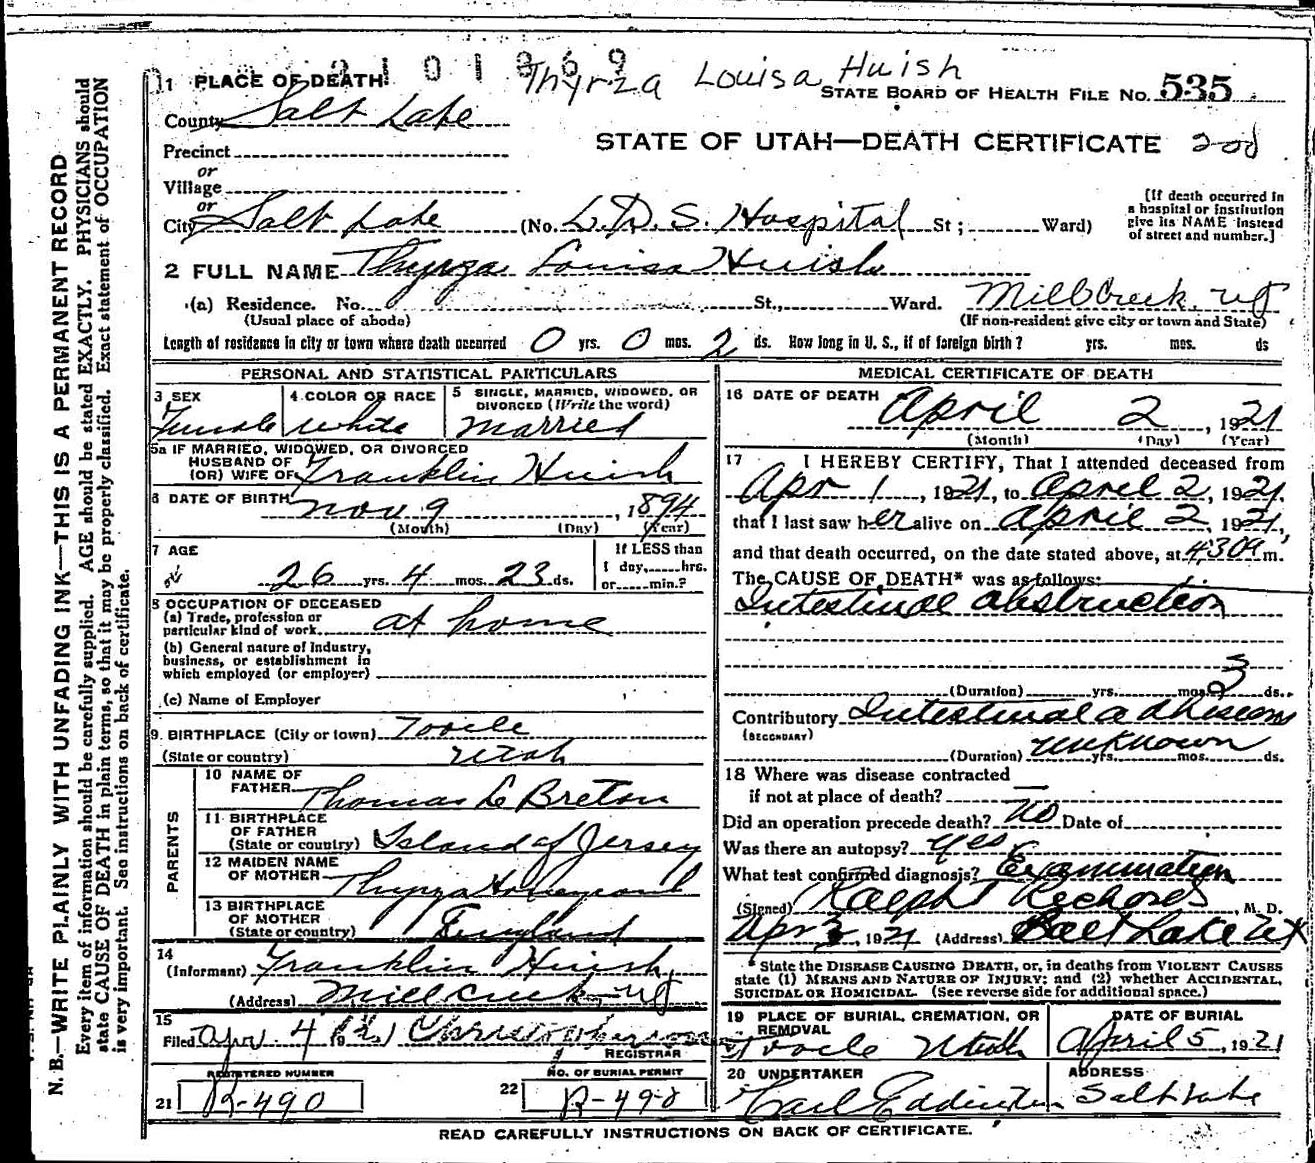 2101869
Thyrza Louisa Huish
1 PLACE OF DEATH
STATE BOARD OF HEALTH FILE NO. 535
County Salt Lake
STATE OF UTAH—DEATH CERTIFICATE
Precinct
or
Village
or
City Salt Lake (No. L.D.S. Hospital St; Ward)
[If death occurred in a hospital or institution give its NAME instead of street and number.]
2 FULL NAME Thyrza Louisa Huish
(a) Residence. No. St., Ward. Mill Creek, Ut
(Usual place of abode) (If non-resident give city or town and State)
Length of residence in city or town where death occurred 0 yrs. 0 mos. 2 ds. How long in U. S., if of foreign birth? yrs. mos. ds
PERSONAL AND STATISTICAL PARTICULARS
3 SEX
Female
4 COLOR OR RACE
White
5 SINGLE, MARRIED, WIDOWED, OR DIVORCED (Write the word)
Married
5a IF MARRIED, WIDOWED, OR DIVORCED
HUSBAND OF
(OR) WIFE OF Franklin Huish
6 DATE OF BIRTH Nov 9, 1894
(Month) (Day) (Year)
7 AGE
26 yrs. 4 mos. 23 ds.
If LESS than
1 day, hrs.
or min.?
8 OCCUPATION OF DECEASED
(a) Trade, profession or
particular kind of work at home
(b) General nature of Industry,
business, or establishment in
which employed (or employer)
(c) Name of Employer
9. BIRTHPLACE (City or town) Tooele
(State or country) Utah
PARENTS
10 NAME OF
FATHER Thomas Le Breton
11 BIRTHPLACE
OF FATHER
(State or country) Island of Jersey
12 MAIDEN NAME
OF MOTHER Thyrza Honeycomb
13 BIRTHPLACE
OF MOTHER
(State or country) England
14
(Informant) Franklin Huish
(Address) Millcreek, Ut
15
Filed Apr. 4 1921
REGISTRAR
REGISTERED NUMBER
21 R-490
NO. OF BURIAL PERMIT
22
MEDICAL CERTIFICATE OF DEATH
16 DATE OF DEATH April 2, 1921
(Month) (Day) (Year)
17 I HEREBY CERTIFY, That I attended deceased from
Apr 1, 1921, to April 2, 1921,
that I last saw her alive on April 2, 1921,
and that death occurred, on the date stated above, at 4:30 a m.
The CAUSE OF DEATH* was as follows:
Intestinal obstruction
(Duration) yrs. mos. ds.
Contributory Intestinal adhesions
(SECONDARY)
(Duration) unknown yrs. mos. ds.
18 Where was disease contracted
if not at place of death? —
Did an operation precede death? No Date of
Was there an autopsy? yes
What test confirmed diagnosis? Examination
(Signed) Ralph T Richards, M. D.
Apr 3, 1921 (Address) Salt Lake Ut
*State the DISEASE CAUSING DEATH, or, in deaths from VIOLENT CAUSES
state (1) MEANS AND NATURE OF INJURY; and (2) whether ACCIDENTAL,
SUICIDAL OR HOMICIDAL. (See reverse side for additional space.)
19 PLACE OF BURIAL, CREMATION, OR
REMOVAL
Tooele Utah
DATE OF BURIAL
April 5, 1921
20 UNDERTAKER
ADDRESS
Salt Lake
READ CAREFULLY INSTRUCTIONS ON BACK OF CERTIFICATE.
N. B.—WRITE PLAINLY WITH UNFADING INK—THIS IS A PERMANENT RECORD
Every item of information should be carefully supplied. AGE should be stated EXACTLY. PHYSICIANS should
state CAUSE OF DEATH in plain terms, so that it may be properly classified. Exact statement of OCCUPATION
is very important. See instructions on back of certificate.